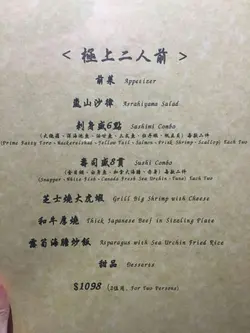 < 極上二人前 >
前菜 Appetizer
嵐山沙律 Arashiyama Salad
刺身盛6點 Sashimi Combo
(Prime Fatty Toro, Mackerel, Yellow Tail, Salmon, Shrimp, Scallop) Each Two
壽司盛8貫 Sushi Combo
(Snapper, White Fish, Canada Fresh Sea Urchin, Tuna) Each Two
芝士燒大虎蝦 Grill Big Shrimp with Cheese
和牛厚燒 Thick Japanese Beef in Sizzling Plate
露筍海膽炒飯 Asparagus with Sea Urchin Fried Rice
甜品 Desserts
$1098 (2位用, For Two Persons)